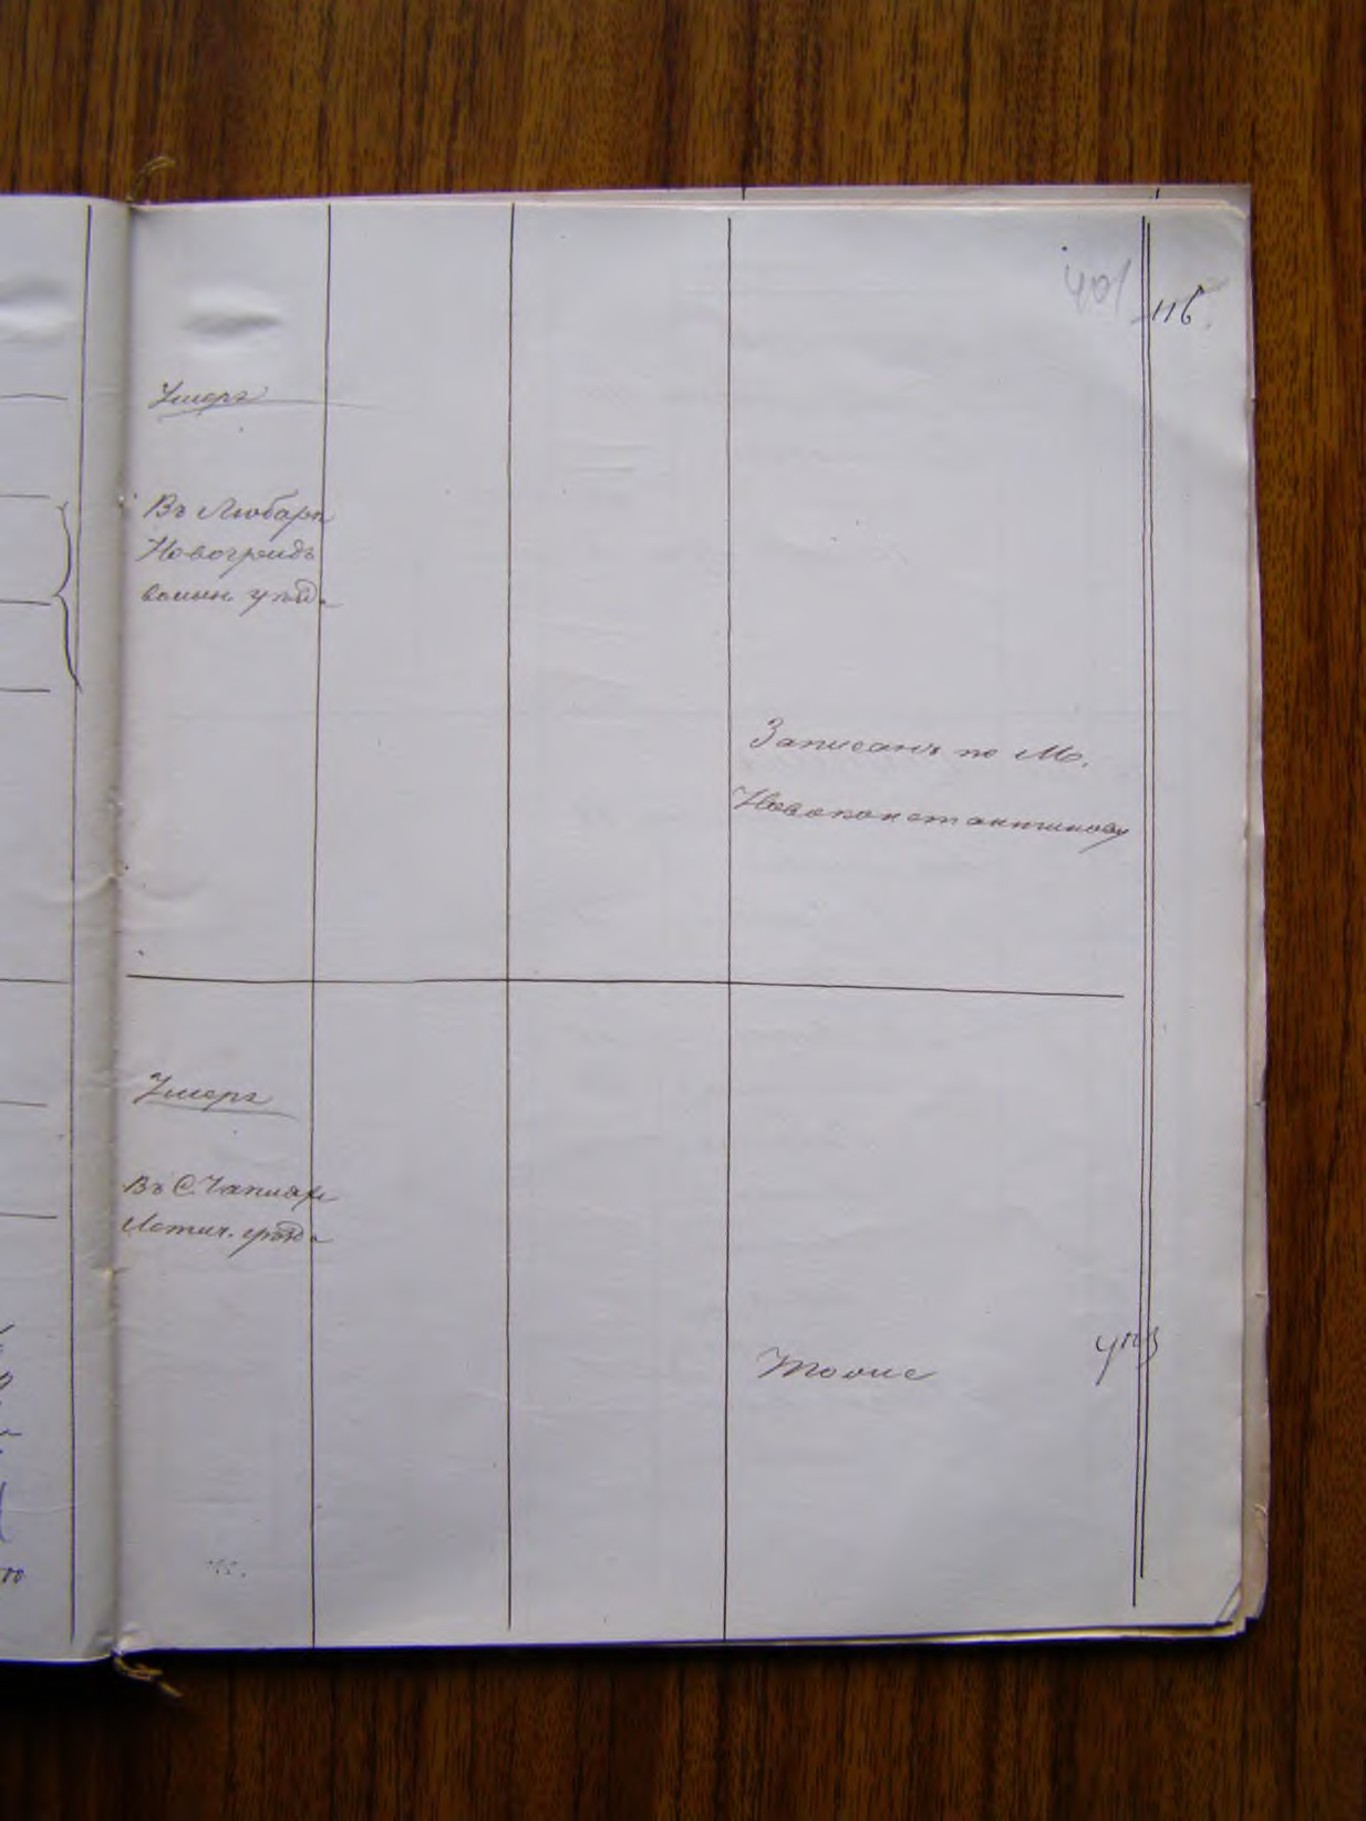 401
116.
Умеръ
Въ Любарѣ
Новоградъ
волын. уѣзда
Записанъ по М.
Новоконстантинову
Умеръ
Въ С.
Летич. уѣзда
Тоже